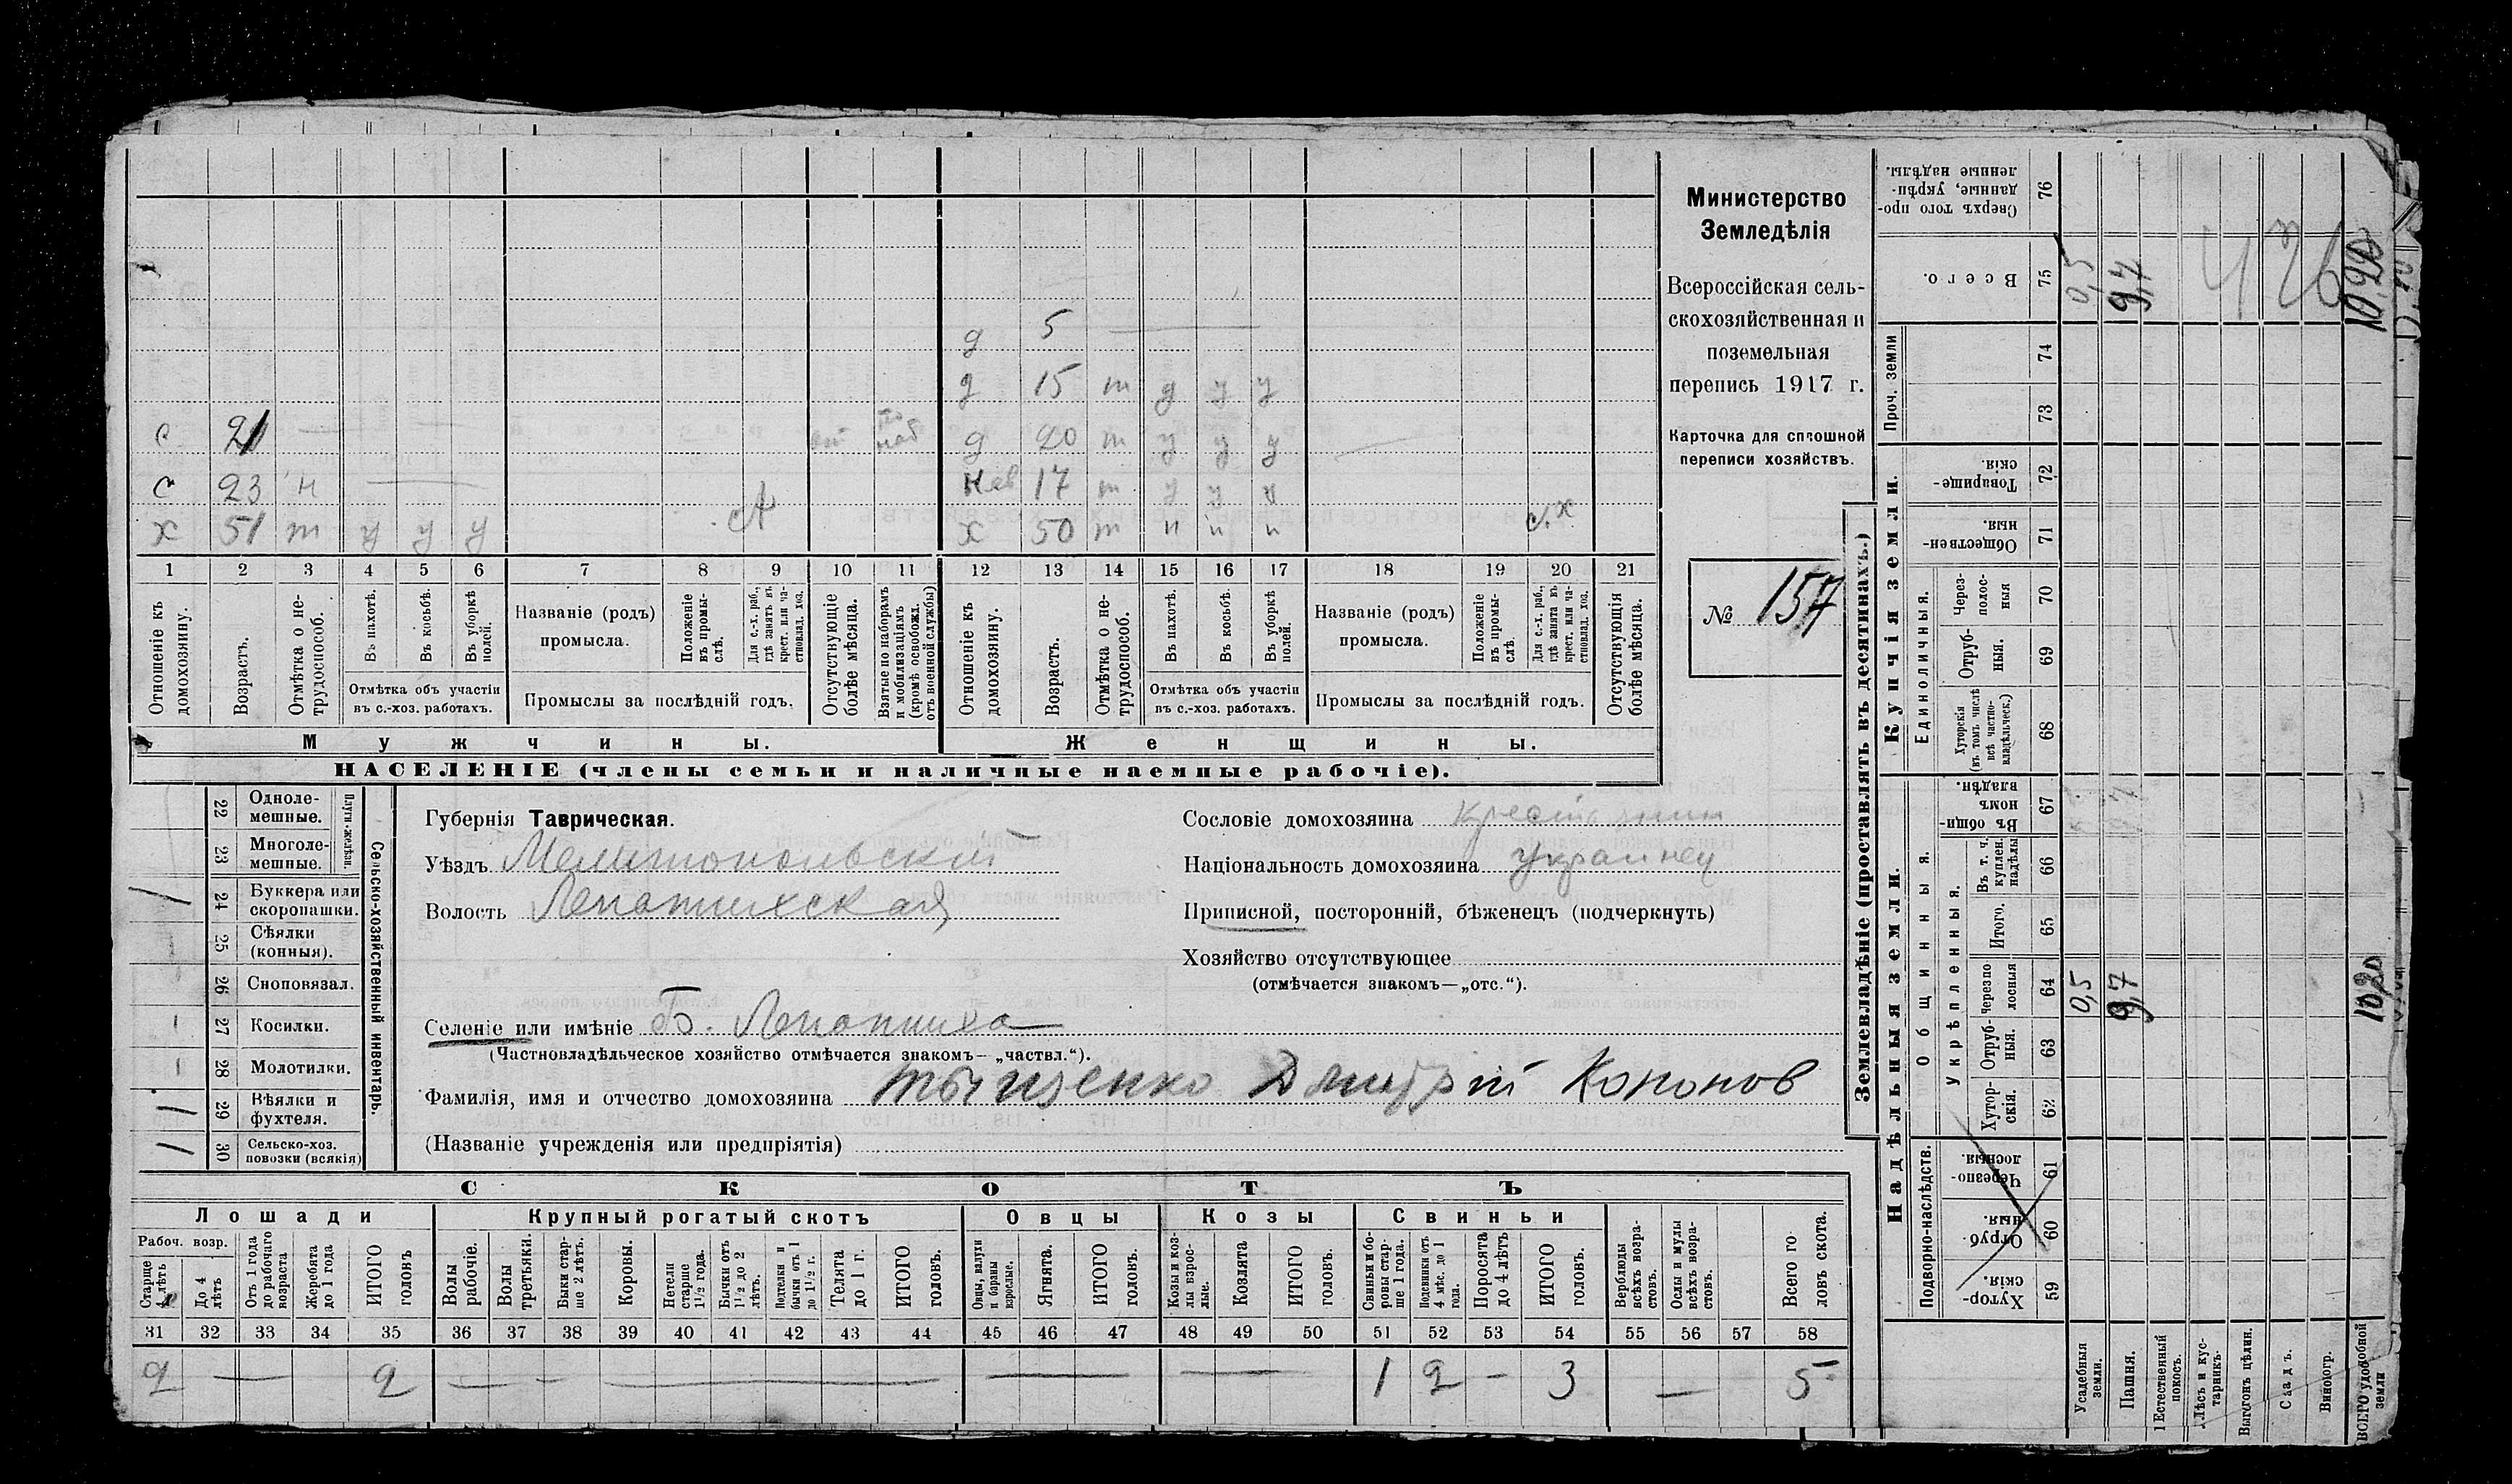 Министерство
Земледѣлія
Всероссійская сель-
скохозяйственная и
поземельная
перепись 1917 г.
Карточка для сплошной
переписи хозяйствъ.
№ 157
д 5
д 15 т д у у
с 21 д 20 т у у у
с 23 н нев 17 т у у у
х 51 т у у у х 50 т и и и с.х
1 2 3 4 5 6 7 8 9 10 11 12 13 14 15 16 17 18 19 20 21
Отношеніе къ домохозяину.
Возрастъ.
Отмѣтка о не-трудоспособ.
Въ пахотѣ.
Въ косьбѣ.
Въ уборкѣ полей.
Отмѣтка объ участіи
въ с.-хоз. работахъ.
Названіе (родъ)
промысла.
Положеніе въ промы-слѣ.
Для с.-х. раб., гдѣ занятъ въ крест. или ча-стновлад. хоз.
Промыслы за послѣдній годъ.
Отсутствующіе болѣе мѣсяца.
Взятые по наборамъ и мобилизаціямъ (кромѣ освобожд. отъ военной службы)
Отношеніе къ домохозяину.
Возрастъ.
Отмѣтка о не-трудоспособ.
Въ пахотѣ.
Въ косьбѣ.
Въ уборкѣ полей.
Отмѣтка объ участіи
въ с.-хоз. работахъ.
Названіе (родъ)
промысла.
Положеніе въ промы-слѣ.
Для с.-х. раб., гдѣ занята въ крест. или ча-стновлад. хоз.
Промыслы за послѣдній годъ.
Отсутствующія болѣе мѣсяца.
Мужчины.
Женщины.
НАСЕЛЕНІЕ (члены семьи и наличные наемные рабочіе).
Сельско-хозяйственный инвентарь.
Плуги желѣзн.
22 Одноле-мешные.
23 Многоле-мешные.
24 Буккера или скоропашки. 1
25 Сѣялки (конныя).
26 Сноповязал.
27 Косилки.
28 Молотилки.
29 Вѣялки и фухтеля. 1
30 Сельско-хоз. повозки (всякія) 1
Губернія Таврическая.
Уѣздъ Мелитопольскій
Волость Лепатихская
Селеніе или имѣніе Б. Лепатиха
(Частновладѣльческое хозяйство отмѣчается знакомъ— „частвл.“).
Сословіе домохозяина крестьянин
Національность домохозяина украинец
Приписной, посторонній, бѣженецъ (подчеркнуть)
Хозяйство отсутствующее
(отмѣчается знакомъ—„отс.“).
Фамилія, имя и отчество домохозяина Тыщенко Дмитрій Кононов
(Названіе учрежденія или предпріятія)
СКОТЪ
Лошади Крупный рогатый скотъ Овцы Козы Свиньи
Рабоч. возр.
Старше 4 лѣтъ
До 4 лѣтъ
Отъ 1 года до рабочаго возраста
Жеребята до 1 года
ИТОГО головъ
Волы рабочіе.
Волы третьяки.
Быки стар-ше 2 лѣтъ.
Коровы.
Нетели старше 1½ года.
Бычки отъ 1½ до 2 лѣтъ.
Подтелки и бычки отъ 1 до 1½ г.
Телята до 1 г.
ИТОГО головъ.
Овцы, валухи и бараны взрослые.
Ягнята.
ИТОГО головъ.
Козы и коз-лы взрос-лые.
Козлята
ИТОГО головъ.
Свиньи и бо-ровы стар-ше 1 года.
Подсвинки отъ 4 мѣс. до 1 года.
Поросята до 4 лѣтъ
ИТОГО головъ.
Верблюды всѣхъ возра-стовъ.
Ослы и мулы всѣхъ возра-стовъ.
Всего го-ловъ скота.
31 32 33 34 35 36 37 38 39 40 41 42 43 44 45 46 47 48 49 50 51 52 53 54 55 56 57 58
2 — 2 — — — — — 1 2 — 3 — 5
Землевладѣніе (проставлять въ десятинахъ.)
Надѣльныя земли.
Купчія земли.
Проч. земли
Подворно-наслѣдств.
Общинныя.
Укрѣпленныя.
Единоличныя.
Сверхъ того про-данные, укрѣп-ленные надѣлы. 76
Всего. 75 0,5 9,7 10,20
74
73
Товарище-скія. 72
Обществен-ныя. 71
Через-полос-ныя 70
Отруб-ныя. 69
Хуторскія (въ томъ числѣ всѣ частно-владѣльческ.) 68
Въ общин-номъ владѣн. 67
Въ т. ч. куплен. надѣлы 66
Итого. 65
Черезпо-лосныя 64 0,5 9,7 10,20
Отруб-ныя. 63
Хутор-скія. 62
Черезпо-лосныя. 61
Отруб-ныя. 60
Хутор-скія. 59
Усадебныя земли.
Пашня.
Естественный покосъ.
Лѣсъ и кус-тарникъ.
Выгонъ цѣлин.
Садъ.
Виногр.
ВСЕГО удобной земли
426